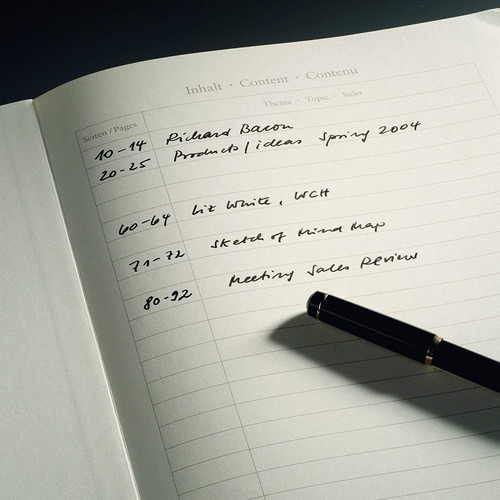 Inhalt · Content · Contenu
Seiten / Pages
Thema · Topic · Sujet
10-14 Richard Bacon
20-25 Products / ideas Spring 2004
60-64 Liz White, WCH
71-72 Sketch of Mind Map
80-92 Meeting Sales Review